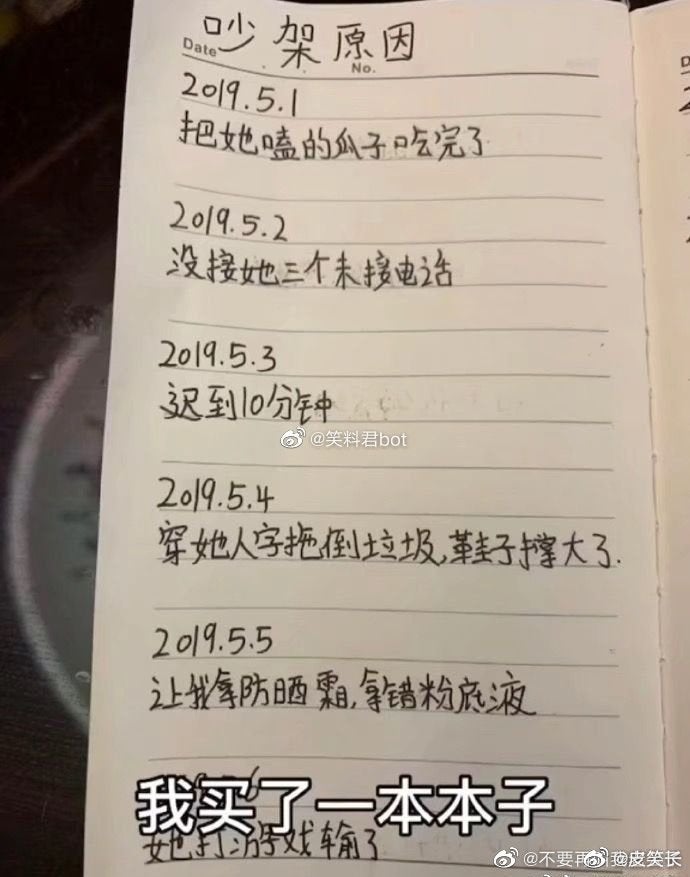 吵架原因
Date
No.
2019.5.1
把她嗑的瓜子吃完了
2019.5.2
没接她三个未接电话
2019.5.3
迟到10分钟
@笑料君bot
2019.5.4
穿她人字拖倒垃圾,鞋子撑大了.
2019.5.5
让我拿防晒霜,拿错粉底液
6
我买了一本本子
她打游戏输了
@不要再
@皮笑长